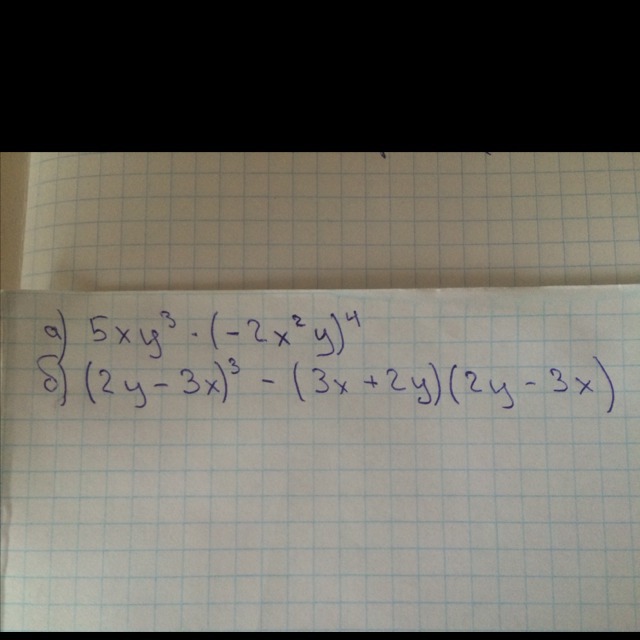 а) 5xy³ · (-2x²y)⁴
б) (2y - 3x)³ - (3x + 2y)(2y - 3x)